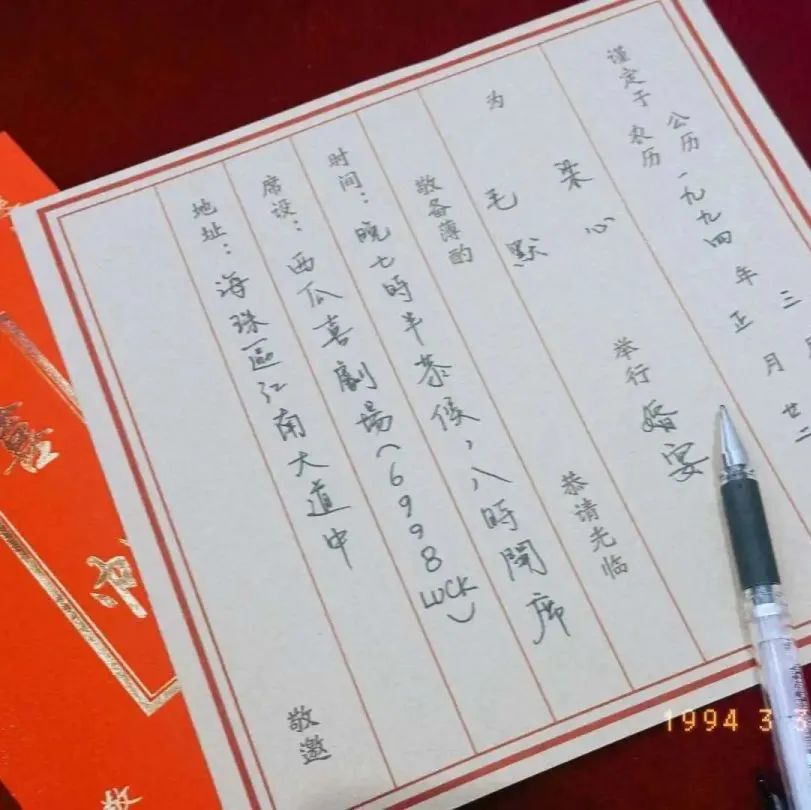 谨定于
公历一九九四年三月
农历 正月廿二
为
梁心
毛默
举行婚宴
敬备薄酌
恭请光临
时间：晚七時半恭候，八時開席
席设：西瓜喜劇場（6998LUCK）
地址：海珠區江南大道中
敬邀
喜
敬
1994 3 3